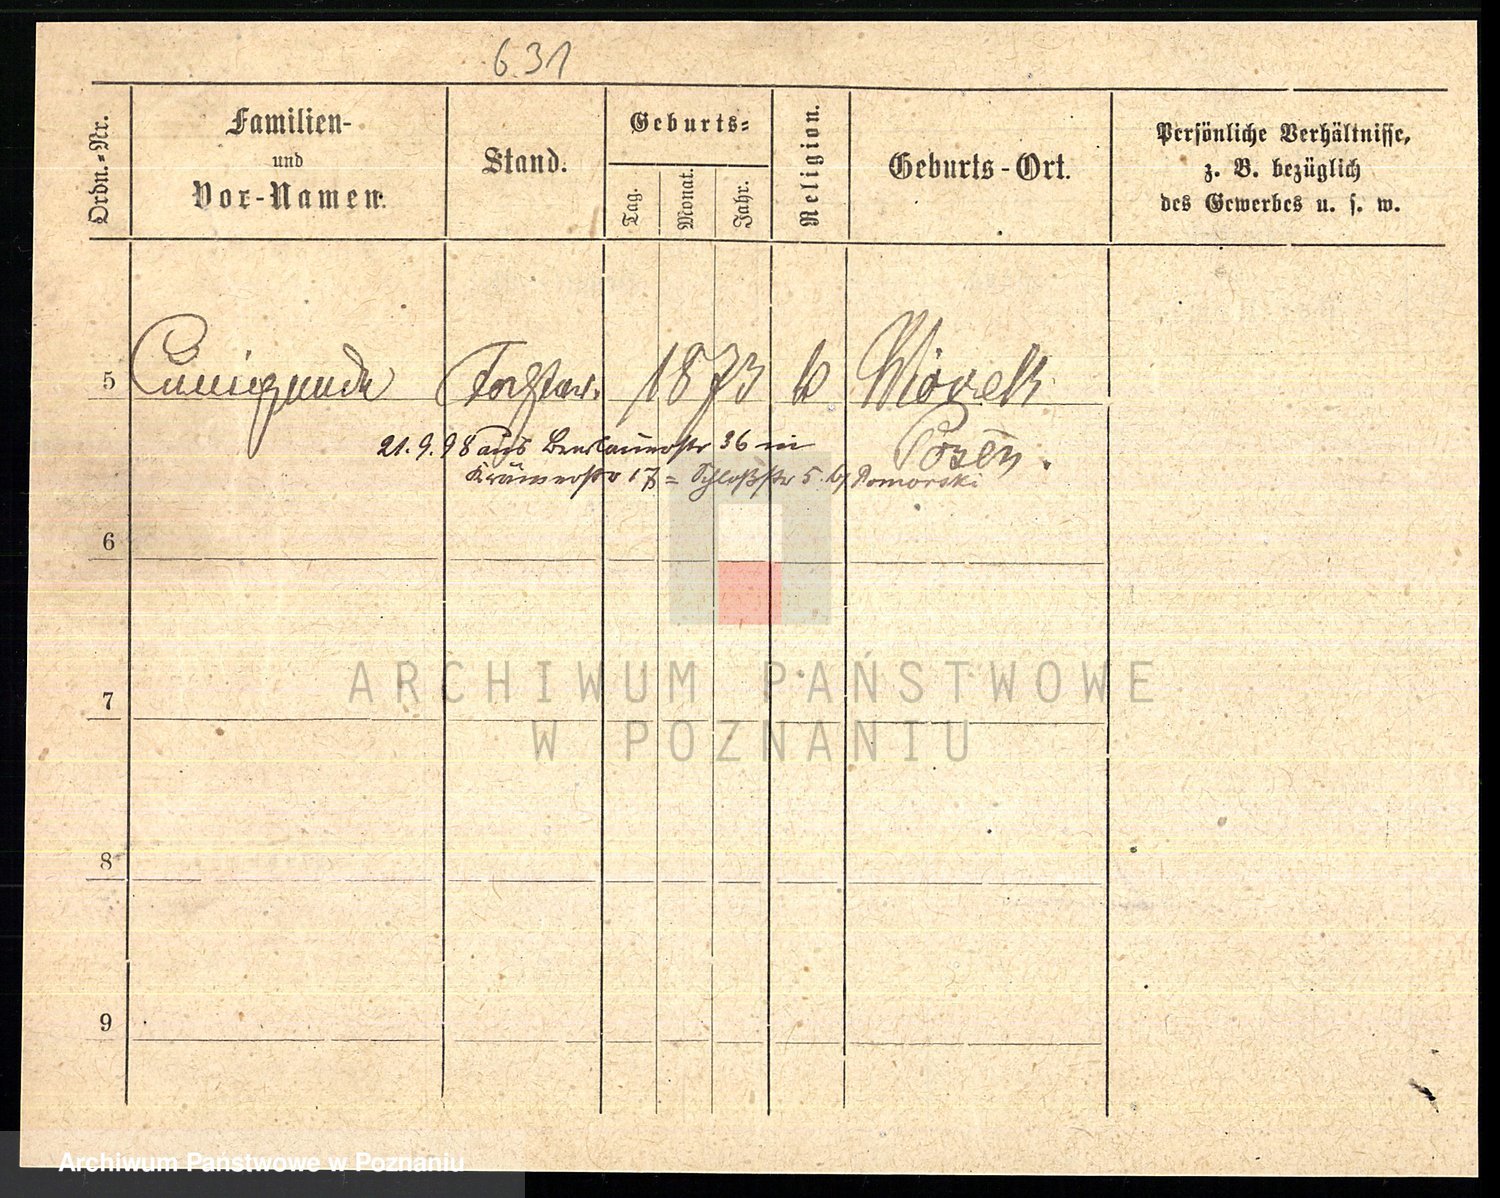 631
Ordn.-Nr.
Familien-
und
Vor-Namen.
Stand.
Geburts-
Tag.
Monat.
Jahr.
Religion.
Geburts-Ort.
Persönliche Verhältnisse,
z. B. bezüglich
des Gewerbes u. s. w.
5 Cunigunde Tochter. 1873 k
Posen.
21.9.98 aus 36 in
Krämerstr 17 = Schloßstr 5. b/ Pomorski
6
7
8
9
ARCHIWUM PAŃSTWOWE
W POZNANIU
Archiwum Państwowe w Poznaniu